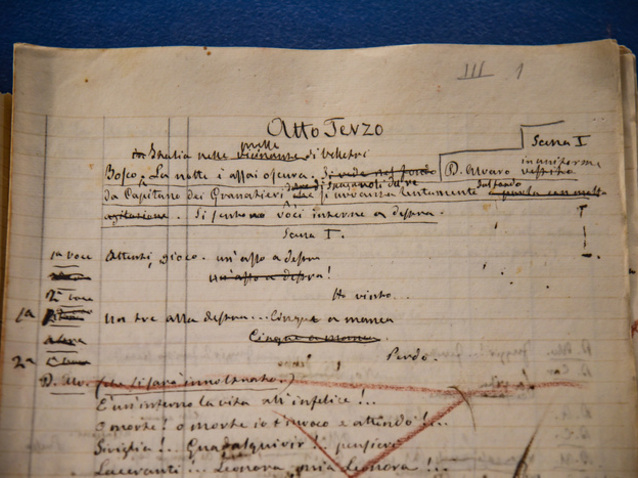 III 1
Atto Terzo
Scena I
in Italia nelle vicinanze di Velletri
Bosco. La notte è assai oscura. Si vede nel fondo D. Alvaro in uniforme
da Capitano dei Granatieri si avvanza lentamente
agitazione. Si sentono voci interne a destra.
Scena I.
1a voce Attenti, gioco. un'asso a destra
un'asso a destra!
2a voce Ho vinto...
1a Un tre alla destra... Cinque a manca
Cinque a manca
2a Perdo.
D. Alv. (che si sarà innoltrato.)
È un'inferno la vita all'infelice!...
o morte! o morte io t'invoco e attendo!...
Siviglia!... Guadalquivir!... pensieri
Laceranti!... Leonora mia Leonora!...